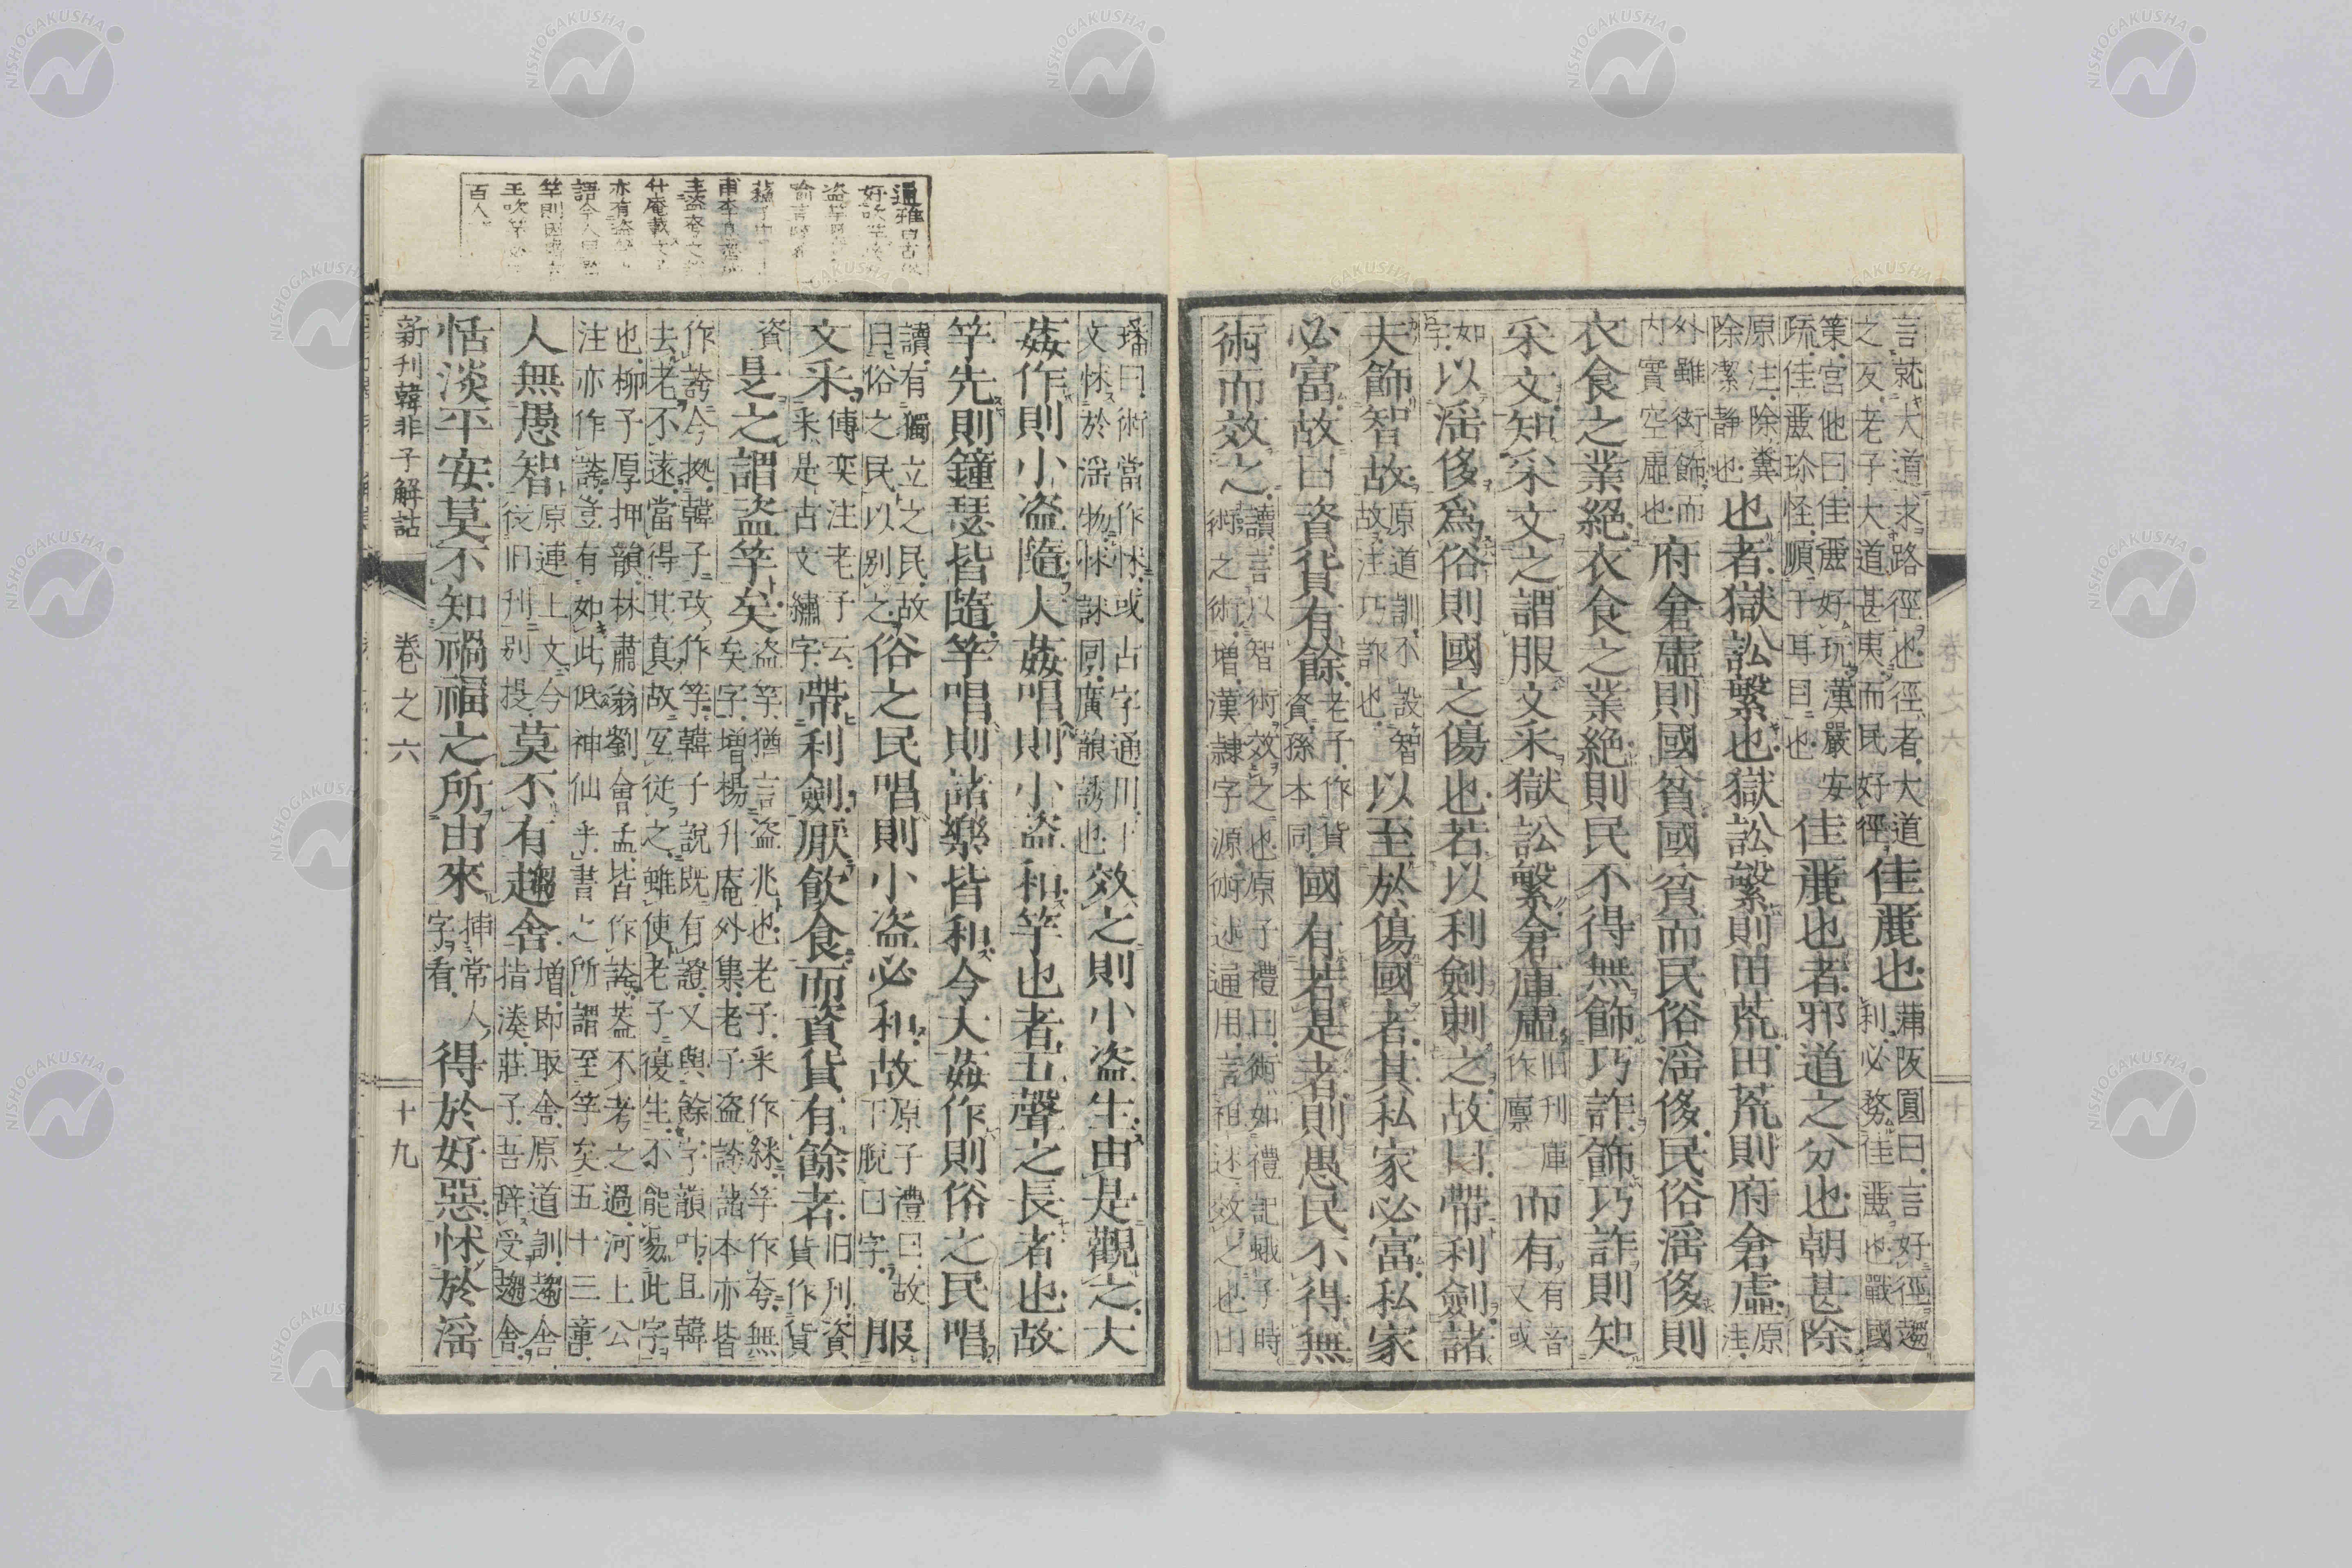 言就大道求路徑也徑者大道之反老子大道甚夷而民好徑佳麗也蒲阪圓曰言好徑趨利必務佳麗也戰國
策宮他曰佳麗好玩漢嚴安疏佳麗珍怪順于耳目也佳麗也者邪道之分也朝甚除
原注除糞除潔靜也也者獄訟繁也獄訟繁則田荒田荒則府倉虛原注
外雖街飾而内實空虛也府倉虛則國貧國貧而民俗淫侈民俗淫侈則
衣食之業絕衣食之業絕則民不得無飾巧詐飾巧詐則知
采文知采文之謂服文采獄訟繁倉庫虛旧刊庫作廩而有有音又或
如字以淫侈爲俗則國之傷也若以利劍刺之故曰帶利劍諸
夫飾智故原道訓不設智故注巧詐也以至於傷國者其私家必富私家
必富故曰資貨有餘老子作貨資孫本同國有若是者則愚民不得無
術而效之讀言以智術效之也原子禮曰術如禮記蛾子時術之術增漢隸字源術述通用言祖述效之也山
璠曰術當作怵或古字通用文怵於淫物怵訹同廣韻誘也效之則小盜生由是觀之大
姦作則小盜隨大姦唱則小盜和竽也者五聲之長者也故
竽先則鐘瑟皆隨竽唱則諸樂皆和今大姦作則俗之民唱
讀有獨立之民故曰俗之民以别之俗之民唱則小盜必和故原子禮曰故下脫曰字服
文采傳奕注老子云采是古文繡字帶利劍厭飲食而資貨有餘者旧刊資貨作貨
資是之謂盜竽矣盜竽猶言盜兆也老子采作綵竽作夸無矣字增楊升庵外集老子盜誇諸本亦皆
作誇今據韓子改作竽韓子說既有證又與餘字韻叶且韓去老不遠當得其真故宜從之雖使老子復生不能易此字
也柳子厚押韻林肅翁劉會孟皆作誇蓋不考之過河上公注亦作誇豈有如此低神仙乎書之所謂至竽矣五十三章
人無愚智原連上文今從旧刊别提莫不有趨舍增即取舍原道訓趨舍指湊莊子吾辞受趨舍
恬淡平安莫不知禍福之所由來插常人字看得於好惡怵於淫
新刊韓非子解詁
卷之六
十九
通雅曰古
好吹竽
盜竽
喻言